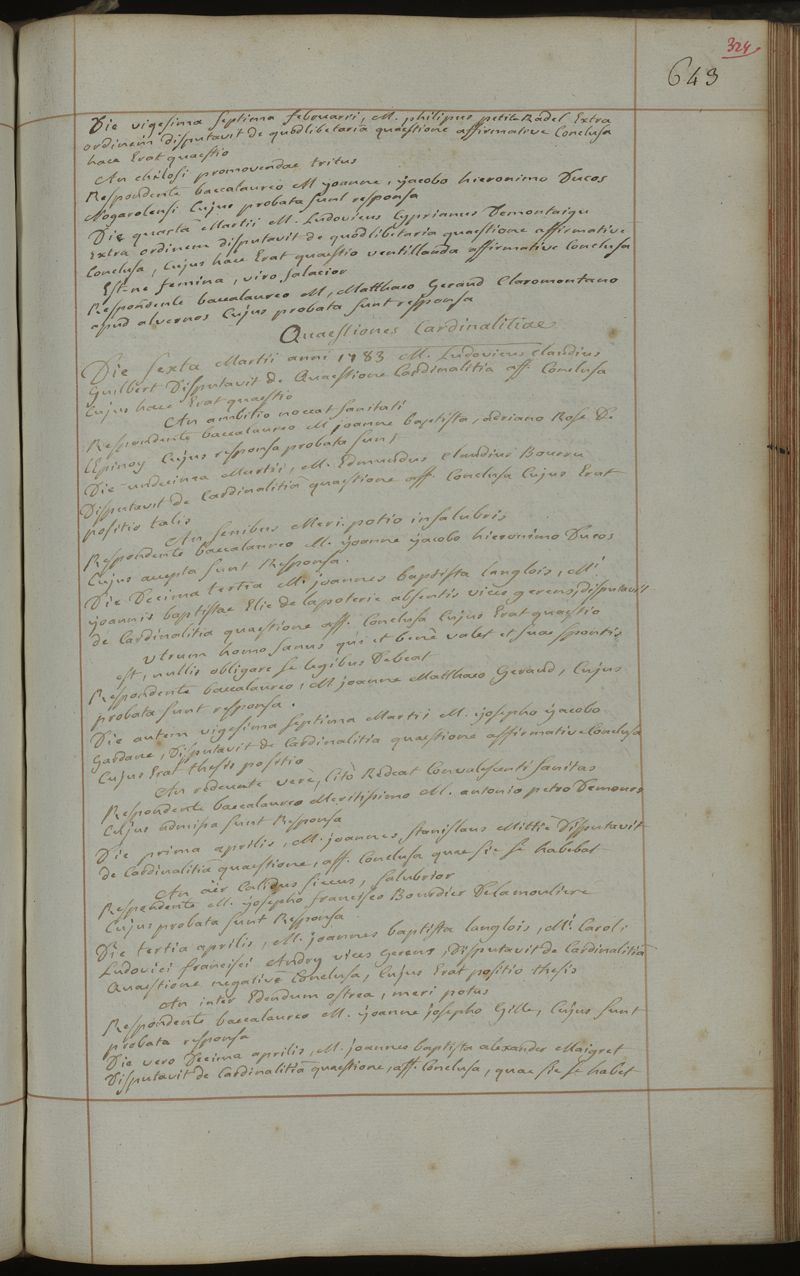 324
643
Die vigesima septima februarii, M. philipus petit-Radel Extra
ordinem disputavit de quodlibetaria quaestione affirmative Conclusa
haec Erat quaestio
An chilosi promovendae tritus
Respondente baccalaureo M joanne, jacobo hieronimo Ducos
Nogarolensi Cujus probata sunt responsa
Die quarta Martii M. Ludovicus Cyprianus Demontaigu
Extra ordinem disputavit de quodlibetaria quaestione affirmative
Conclusa, Cujus haec Erat quaestio ventillanda affirmative Conclusa
Est-ne femina, viro salacior
Respondente baccalaureo M, Matthaeo Geraud Claromontano
apud alvernos Cujus probata sunt responsa
Quaestiones Cardinalitiae
Die Sexta Martii anni 1783 M. Ludovicus Claudius
Guilbert Disputavit de Quaestione Cardinalitia aff. Conclusa
Cujus haec Erat quaestio
An ambitio noceat sanitati
Respondente baccalaureo M joanne baptista, adriano Rose De
LEpinoy Cujus responsa probata sunt
Die undecima Martii, M. Edmundus Claudius Bourru
Disputavit de Cardinalitiâ quaestione aff. Conclusa Cujus Erat
positio talis
An senibus Meri potio insalubris
Respondente baccalaureo M. joanne jacobo hieronimo Ducos
Cujus accepta sunt Responsa.
Die Decima tertia M. joannes baptista langlois, Mi
joannis baptistae Elie de lapoterie absentis vices gerens, disputavit
de Cardinalitia quaestione aff. Conclusa Cujus Erat quaestio
Utrum homo sanus qui et benè valet et suae spontis
est, nullis obligare se legibus Debeat
Respondente baccalaureo, M joanne Matthaeo Geraud, Cujus
probata sunt responsa.
Die autem vigesima septima Martii M. josepho jacobo
Gardane, Disputavit de Cardinalitia quaestione affirmative Conclusa
Cujus Erat thesis positio
An redeunte vere, Citò Redeat Convalescenti sanitas
Respondente baccalaureo Meritissimo M. antonio petro Demours
Cujus admissa sunt Responsa
Die prima aprilis, M. joannes, stanislaus Mittié Disputavit
de Cardinalitiâ quaestione, aff. Conclusa quae sic se habebat
An aër Calidus siccus, salubrior
Respondente M. josepho francisco Bourdier Delamouliere
Cujus probata sunt Responsa
Die tertia aprilis, M. joannes baptista langlois, Mi. Caroli
Ludovici francisci Andry vices gerens, Disputavit de Cardinalitiâ
Quaestione negativè Conclusa, Cujus Erat positio thesis
An inter Edendum ostrea, meri potus
Respondente baccalaureo M. joanne josepho Gille, Cujus sunt
probata responsa
Die vero Decima aprilis, M. joannes baptista alexander Maigret
Disputavit de Cardinalitiâ quaestione, aff. Conclusa, quae sic se habet